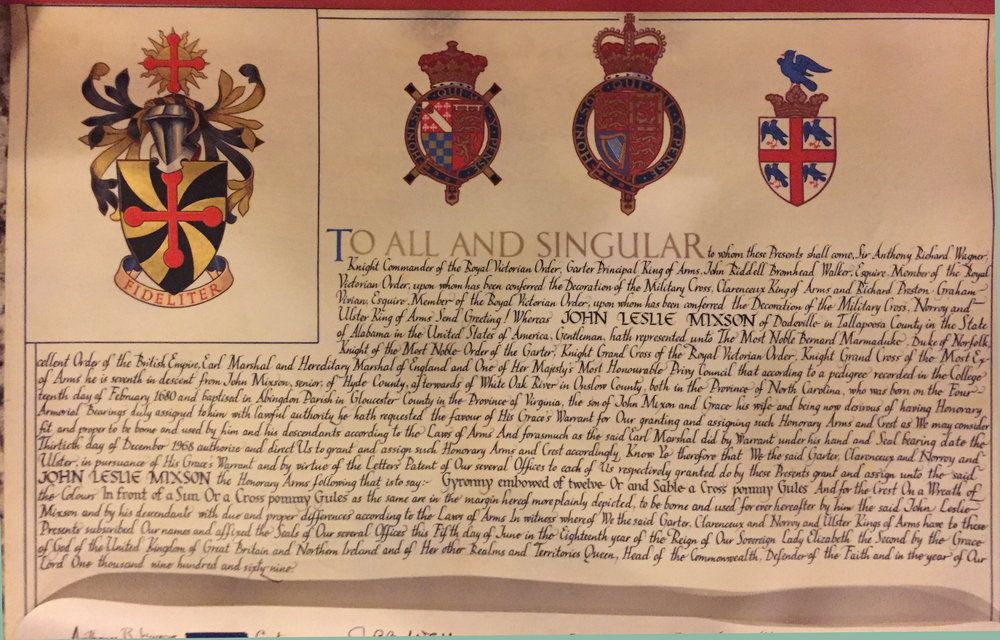 FIDELITER
HONI·SOIT·QUI·MAL·Y·PENSE
HONI·SOIT·QUI·MAL·Y·PENSE
TO ALL AND SINGULAR to whom these Presents shall come, Sir Anthony Richard Wagner,
Knight Commander of the Royal Victorian Order, Garter Principal King of Arms, John Riddell Bromhead Walker, Esquire, Member of the Royal
Victorian Order, upon whom has been conferred the Decoration of the Military Cross, Clarenceux King of Arms and Richard Preston Graham-
Vivian, Esquire, Member of the Royal Victorian Order, upon whom has been conferred the Decoration of the Military Cross, Norroy and
Ulster King of Arms Send Greeting! Whereas JOHN LESLIE MIXSON of Dadeville in Tallapoosa County in the State
of Alabama in the United States of America, Gentleman, hath represented unto The Most Noble Bernard Marmaduke, Duke of Norfolk,
Knight of the Most Noble Order of the Garter, Knight Grand Cross of the Royal Victorian Order, Knight Grand Cross of the Most Ex-
cellent Order of the British Empire, Earl Marshal and Hereditary Marshal of England and One of Her Majesty's Most Honourable Privy Council that according to a pedigree recorded in the College
of Arms he is seventh in descent from John Mixson, senior, of Hyde County, afterwards of White Oak River in Onslow County, both in the Province of North Carolina, who was born on the Four-
teenth day of February 1680 and baptised in Abingdon Parish in Gloucester County in the Province of Virginia, the son of John Mixon and Grace his wife and being now desirous of having Honorary
Armorial Bearings duly assigned to him with lawful authority he hath requested the favour of His Grace's Warrant for Our granting and assigning such Honorary Arms and Crest as We may consider
fit and proper to be borne and used by him and his descendants according to the Laws of Arms And forasmuch as the said Earl Marshal did by Warrant under his hand and Seal bearing date the
Thirtieth day of December 1968 authorize and direct Us to grant and assign such Honorary Arms and Crest accordingly, Know Ye therefore that We the said Garter, Clarenceux and Norroy and
Ulster, in pursuance of His Grace's Warrant and by virtue of the Letters Patent of Our several Offices to each of Us respectively granted do by these Presents grant and assign unto the said
JOHN LESLIE MIXSON the Honorary Arms following that is to say:- Gyronny embowed of twelve Or and Sable a Cross pommy Gules And for the Crest On a Wreath of
the Colours In front of a Sun Or a Cross pommy Gules as the same are in the margin hereof more plainly depicted, to be borne and used for ever hereafter by him the said John Leslie
Mixson and by his descendants with due and proper differences according to the Laws of Arms In witness whereof We the said Garter, Clarenceux and Norroy and Ulster Kings of Arms have to these
Presents subscribed Our names and affixed the Seals of Our several Offices this Fifth day of June in the Eighteenth year of the Reign of Our Sovereign Lady Elizabeth the Second by the Grace
of God of the United Kingdom of Great Britain and Northern Ireland and of Her other Realms and Territories Queen, Head of the Commonwealth, Defender of the Faith and in the year of Our
Lord One thousand nine hundred and sixty nine.